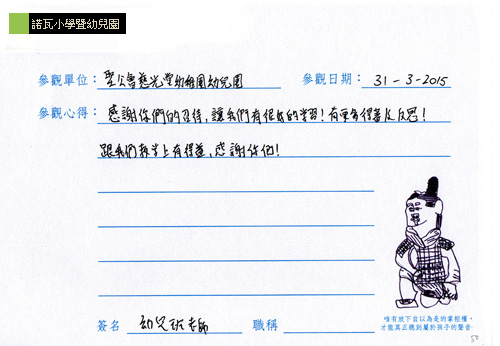 諾瓦小學暨幼兒園
參觀單位：聖公會慈光堂幼稚園幼兒園
參觀日期：31-3-2015
參觀心得：感謝你們的招待，讓我們有很好的學習！有更多得着及反思！
跟我們教學上有得着，感謝你們！
唯有放下自以為是的掌控權，
才能真正聽到屬於孩子的聲音
簽名 幼兒班老師 職稱
50